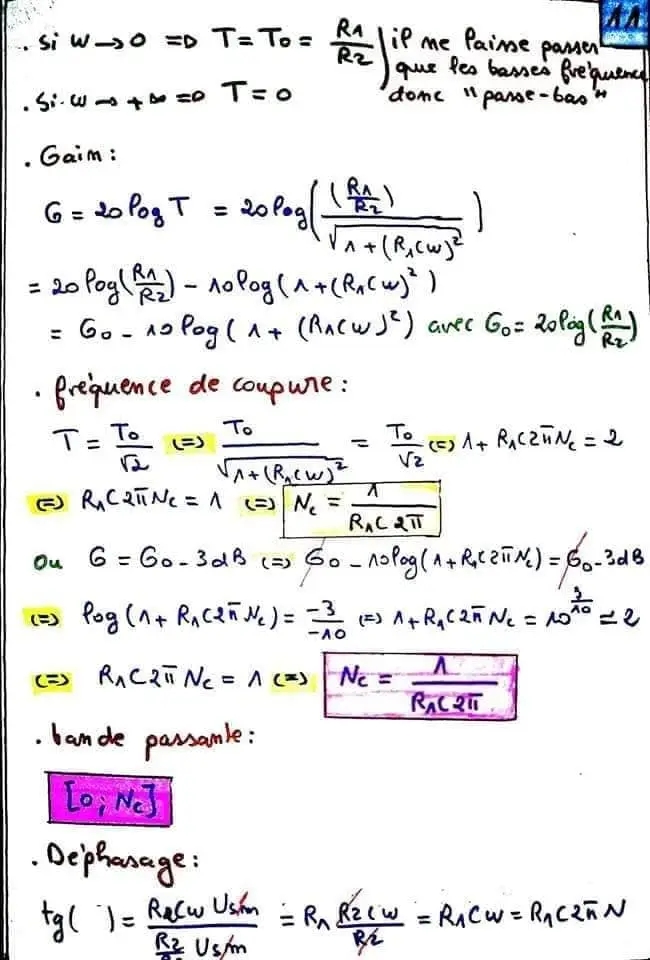 11
. Si w → 0 => T = T0 = R1/R2 ) il ne laisse passer
que les basses fréquence
. Si w → +∞ => T = 0 donc "passe-bas"
. Gain :
G = 20 log T = 20 log( (R1/R2) / √(1+(R1Cw)²) )
= 20 log(R1/R2) - 10 log(1+(R1Cw)²)
= G0 - 10 log(1 + (R1Cw)²) avec G0 = 20 log(R1/R2)
. fréquence de coupure :
T = T0/√2 (=) T0/√(1+(R1Cw)²) = T0/√2 (=) 1 + R1C2πNc = 2
(=) R1C2πNc = 1 (=) Nc = 1/(R1C2π)
Ou G = G0 - 3dB (=) G0 - 10 log(1 + R1C2πNc) = G0 - 3dB
(=) log(1 + R1C2πNc) = -3/-10 (=) 1 + R1C2πNc = 10^(3/10) ≃ 2
(=) R1C2πNc = 1 (=) Nc = 1/(R1C2π)
. bande passante :
[0 ; Nc]
. Déphasage :
tg( ) = R2Cw Usm / (R2/R1 Usm) = R1 R2Cw/R2 = R1Cw = R1C2πN